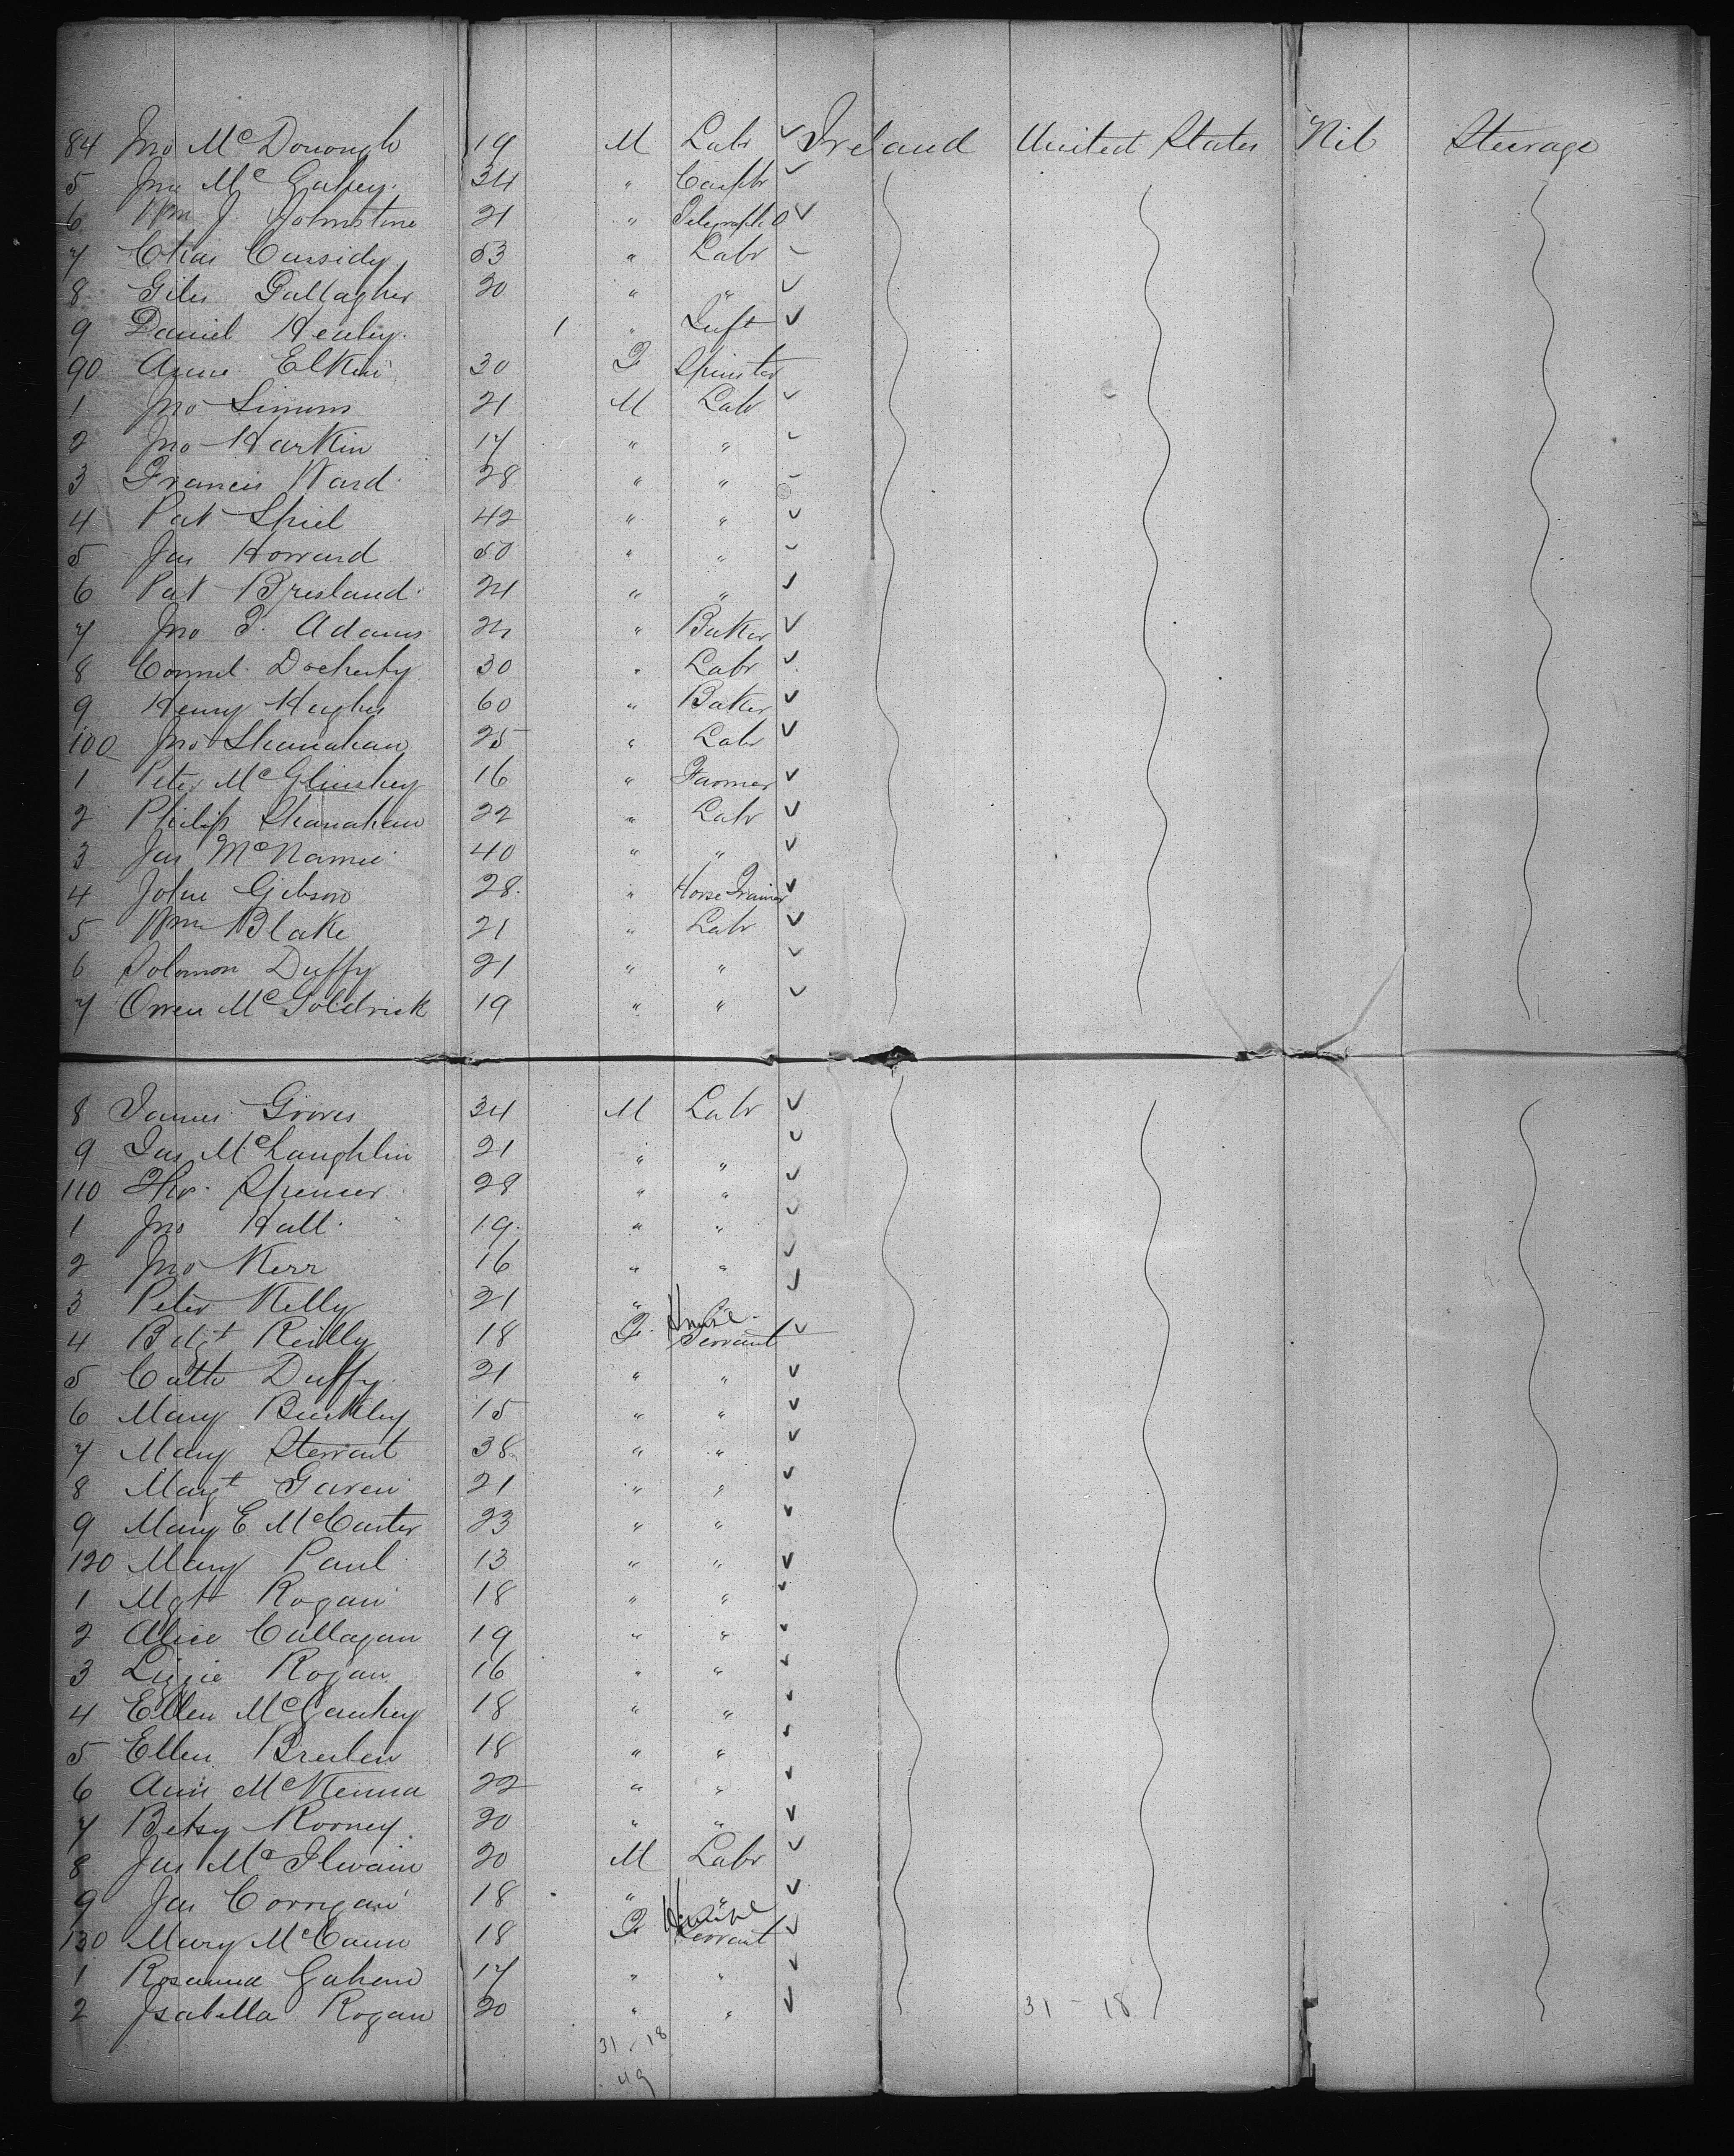 84 Jno McDonough 19 M Labr ✓ Ireland United States Nil Steerage
5 Jno McGahey. 34 " Carptr ✓
6 Wm J. Johnstone 21 " Telegraph O ✓
7 Chas Cassidy 53 " Labr ✓
8 Giles Gallagher 20 " " ✓
9 Daniel Healey. 1 " Inft ✓
90 Annie Elkin 30 F Spinster
1 Jno Simons 21 M Labr ✓
2 Jno Harkin 17 " " ✓
3 Francis Ward 28 " " ✓
4 Pat Shiel 42 " " ✓
5 Jas Howard 50 " " ✓
6 Pat Bresland 24 " " ✓
7 Jno T. Adams 24 " Baker ✓
8 Connel Docherty 30 " Labr ✓
9 Henry Hughes 60 " Baker ✓
100 Jno Shanahan 25 " Labr ✓
1 Peter McGlinshey 16 " Farmer ✓
2 Philip Shanahan 22 " Labr ✓
3 Jas McNamee 40 " " ✓
4 John Gibson 28. " Horse Trainer ✓
5 Wm Blake 21 " Labr ✓
6 Solomon Duffy 21 " " ✓
7 Owen McGoldrick 19 " " ✓
8 James Groves 34 M Labr ✓
9 Jas McLaughlin 21 " " ✓
110 Thos. Spencer 28 " " ✓
1 Jno Hall 19. " " ✓
2 Jno Kerr 16 " " ✓
3 Peter Kelly 21 " " ✓
4 Bdgt Reilly 18 F. House Servant ✓
5 Cath Duffy 21 " " ✓
6 Mary Buckley 15 " " ✓
7 Mary Stewart 38 " " ✓
8 Margt Gaven 21 " " ✓
9 Mary E McCarter 23 " " ✓
120 Mary Paul 13 " " ✓
1 Mgt Rogan 18 " " ✓
2 Alice Callagan 19 " " ✓
3 Lizzie Rogan 16 " " ✓
4 Ellen McGaukey 18 " " ✓
5 Ellen Breslen 18 " " ✓
6 Ann McKenna 22 " " ✓
7 Betsy Rooney. 20 " " ✓
8 Jas McIlwain 20 M Labr ✓
9 Jas Corrigan 18 " " ✓
130 Mary McCann 18 F House Servant ✓
1 Rosanna Gahan 17 " " ✓
2 Isabella Rogan 20 " " ✓ 31 - 18
31 - 18
49